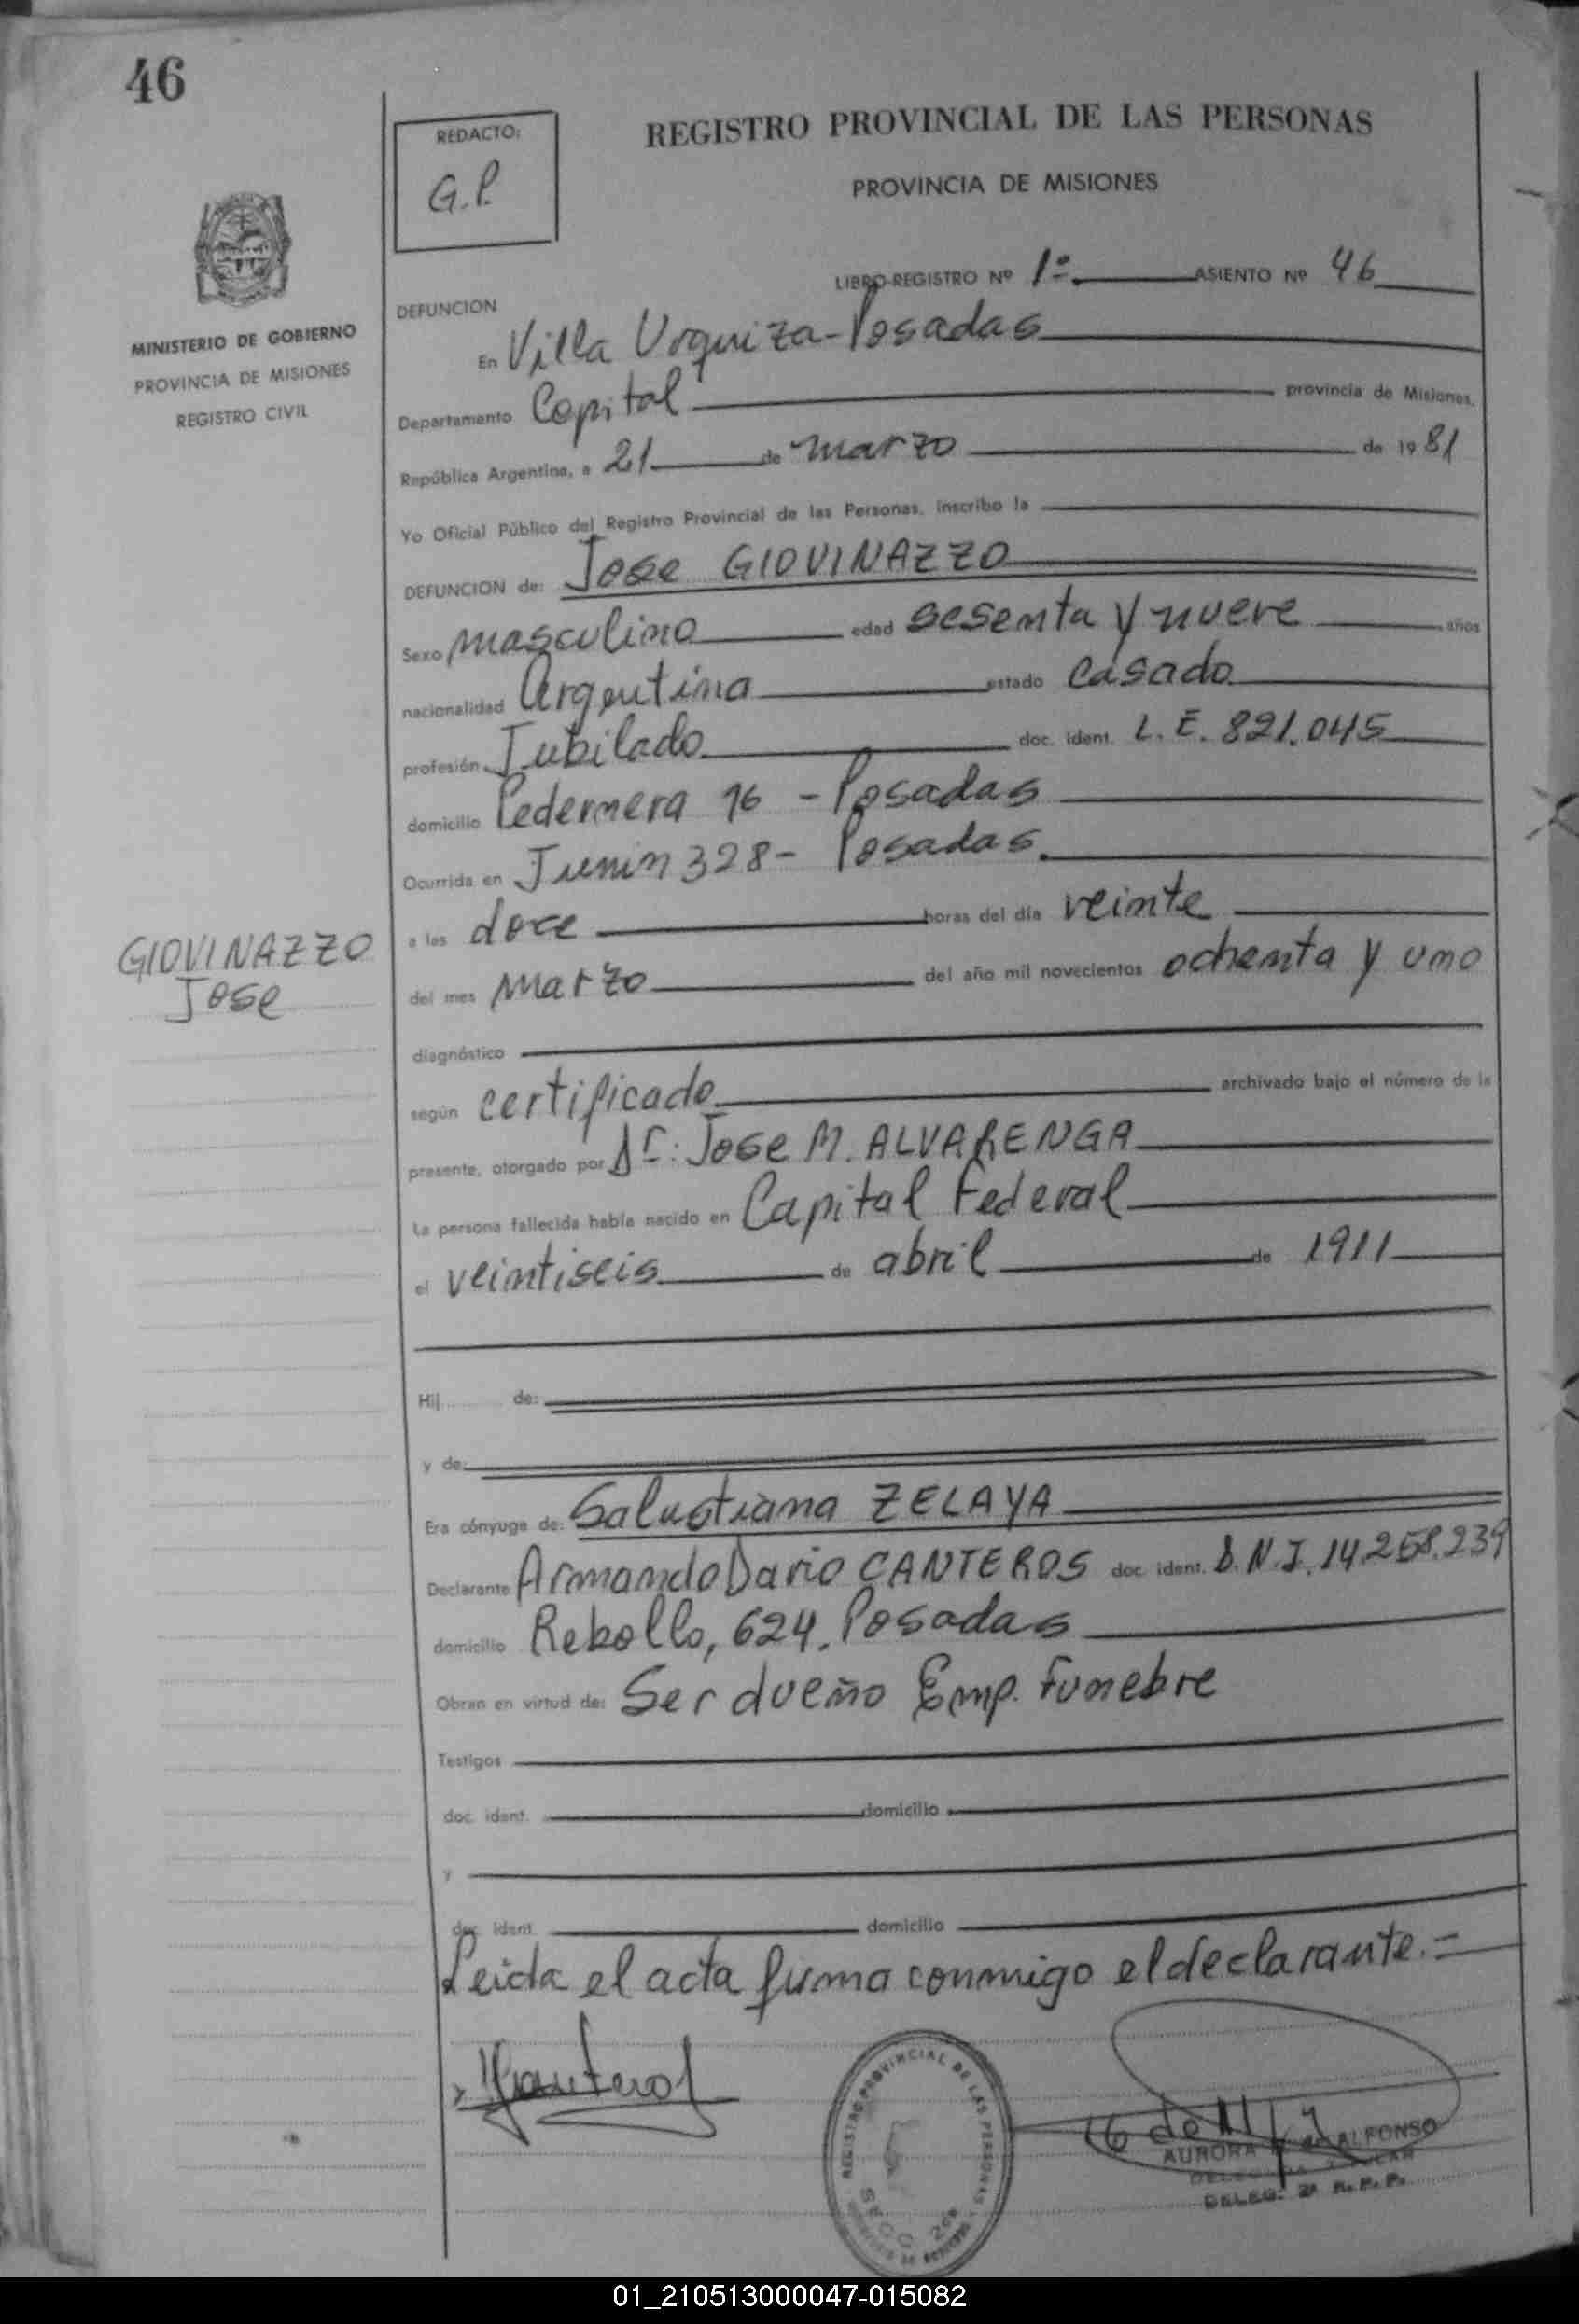 46
REDACTO:
G.P.
REGISTRO PROVINCIAL DE LAS PERSONAS
PROVINCIA DE MISIONES
MINISTERIO DE GOBIERNO
PROVINCIA DE MISIONES
REGISTRO CIVIL
LIBRO-REGISTRO Nº 1º. ASIENTO Nº 46
DEFUNCION
En Villa Urquiza-Posadas
Departamento Capital provincia de Misiones,
República Argentina, a 21 de marzo de 1981
Yo Oficial Público del Registro Provincial de las Personas, inscribo la
DEFUNCION de: Jose GIOVINAZZO
Sexo masculino edad sesenta y nueve años
nacionalidad Argentina estado Casado
profesión Jubilado doc. ident. L.E. 821.045
domicilio Pedernera 76 - Posadas
Ocurrida en Junin 328- Posadas.
a las doce horas del día veinte
GIOVINAZZO
Jose
del mes marzo del año mil novecientos ochenta y uno
diagnóstico
según certificado archivado bajo el número de la
presente, otorgado por Dr: Jose M. ALVARENGA
La persona fallecida había nacido en Capital Federal
el veintiseis de abril de 1911
Hij........ de:
y de:
Era cónyuge de: Salustiana ZELAYA
Declarante Armando Dario CANTEROS doc. ident. D.N.I. 14.258.239
domicilio Rebollo, 624, Posadas
Obran en virtud de: Ser dueño Emp. Funebre
Testigos
doc. ident. domicilio
y
doc. ident. domicilio
Leida el acta firma conmigo el declarante.=
REGISTRO PROVINCIAL DE LAS PERSONAS
AURORA ALFONSO
DELEG. 2ª R.P.P.
01_210513000047-015082